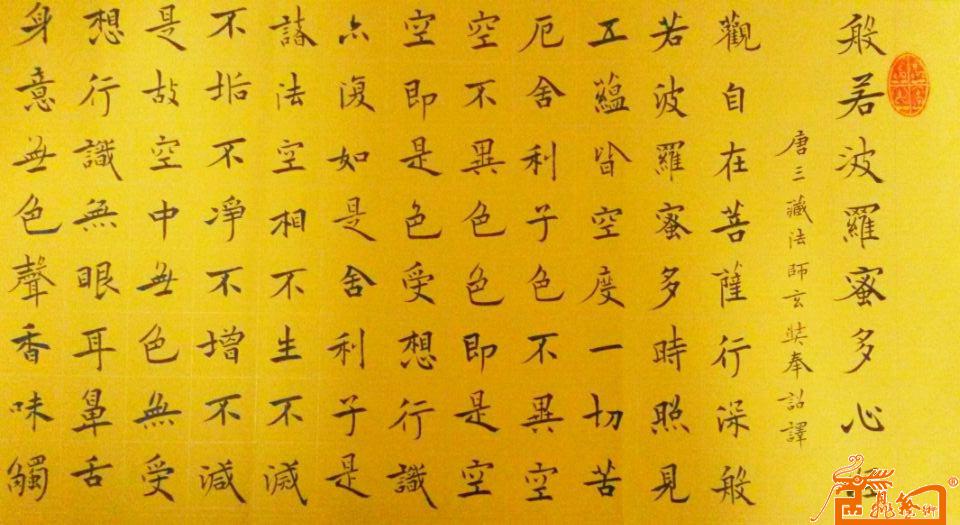 般若波羅蜜多心
唐三藏法師玄奘奉詔譯
觀自在菩薩行深般
若波羅蜜多時照見
五蘊皆空度一切苦
厄舍利子色不異空
空不異色色即是空
空即是色受想行識
亦復如是舍利子是
諸法空相不生不滅
不垢不凈不增不減
是故空中無色無受
想行識無眼耳鼻舌
身意無色聲香味觸